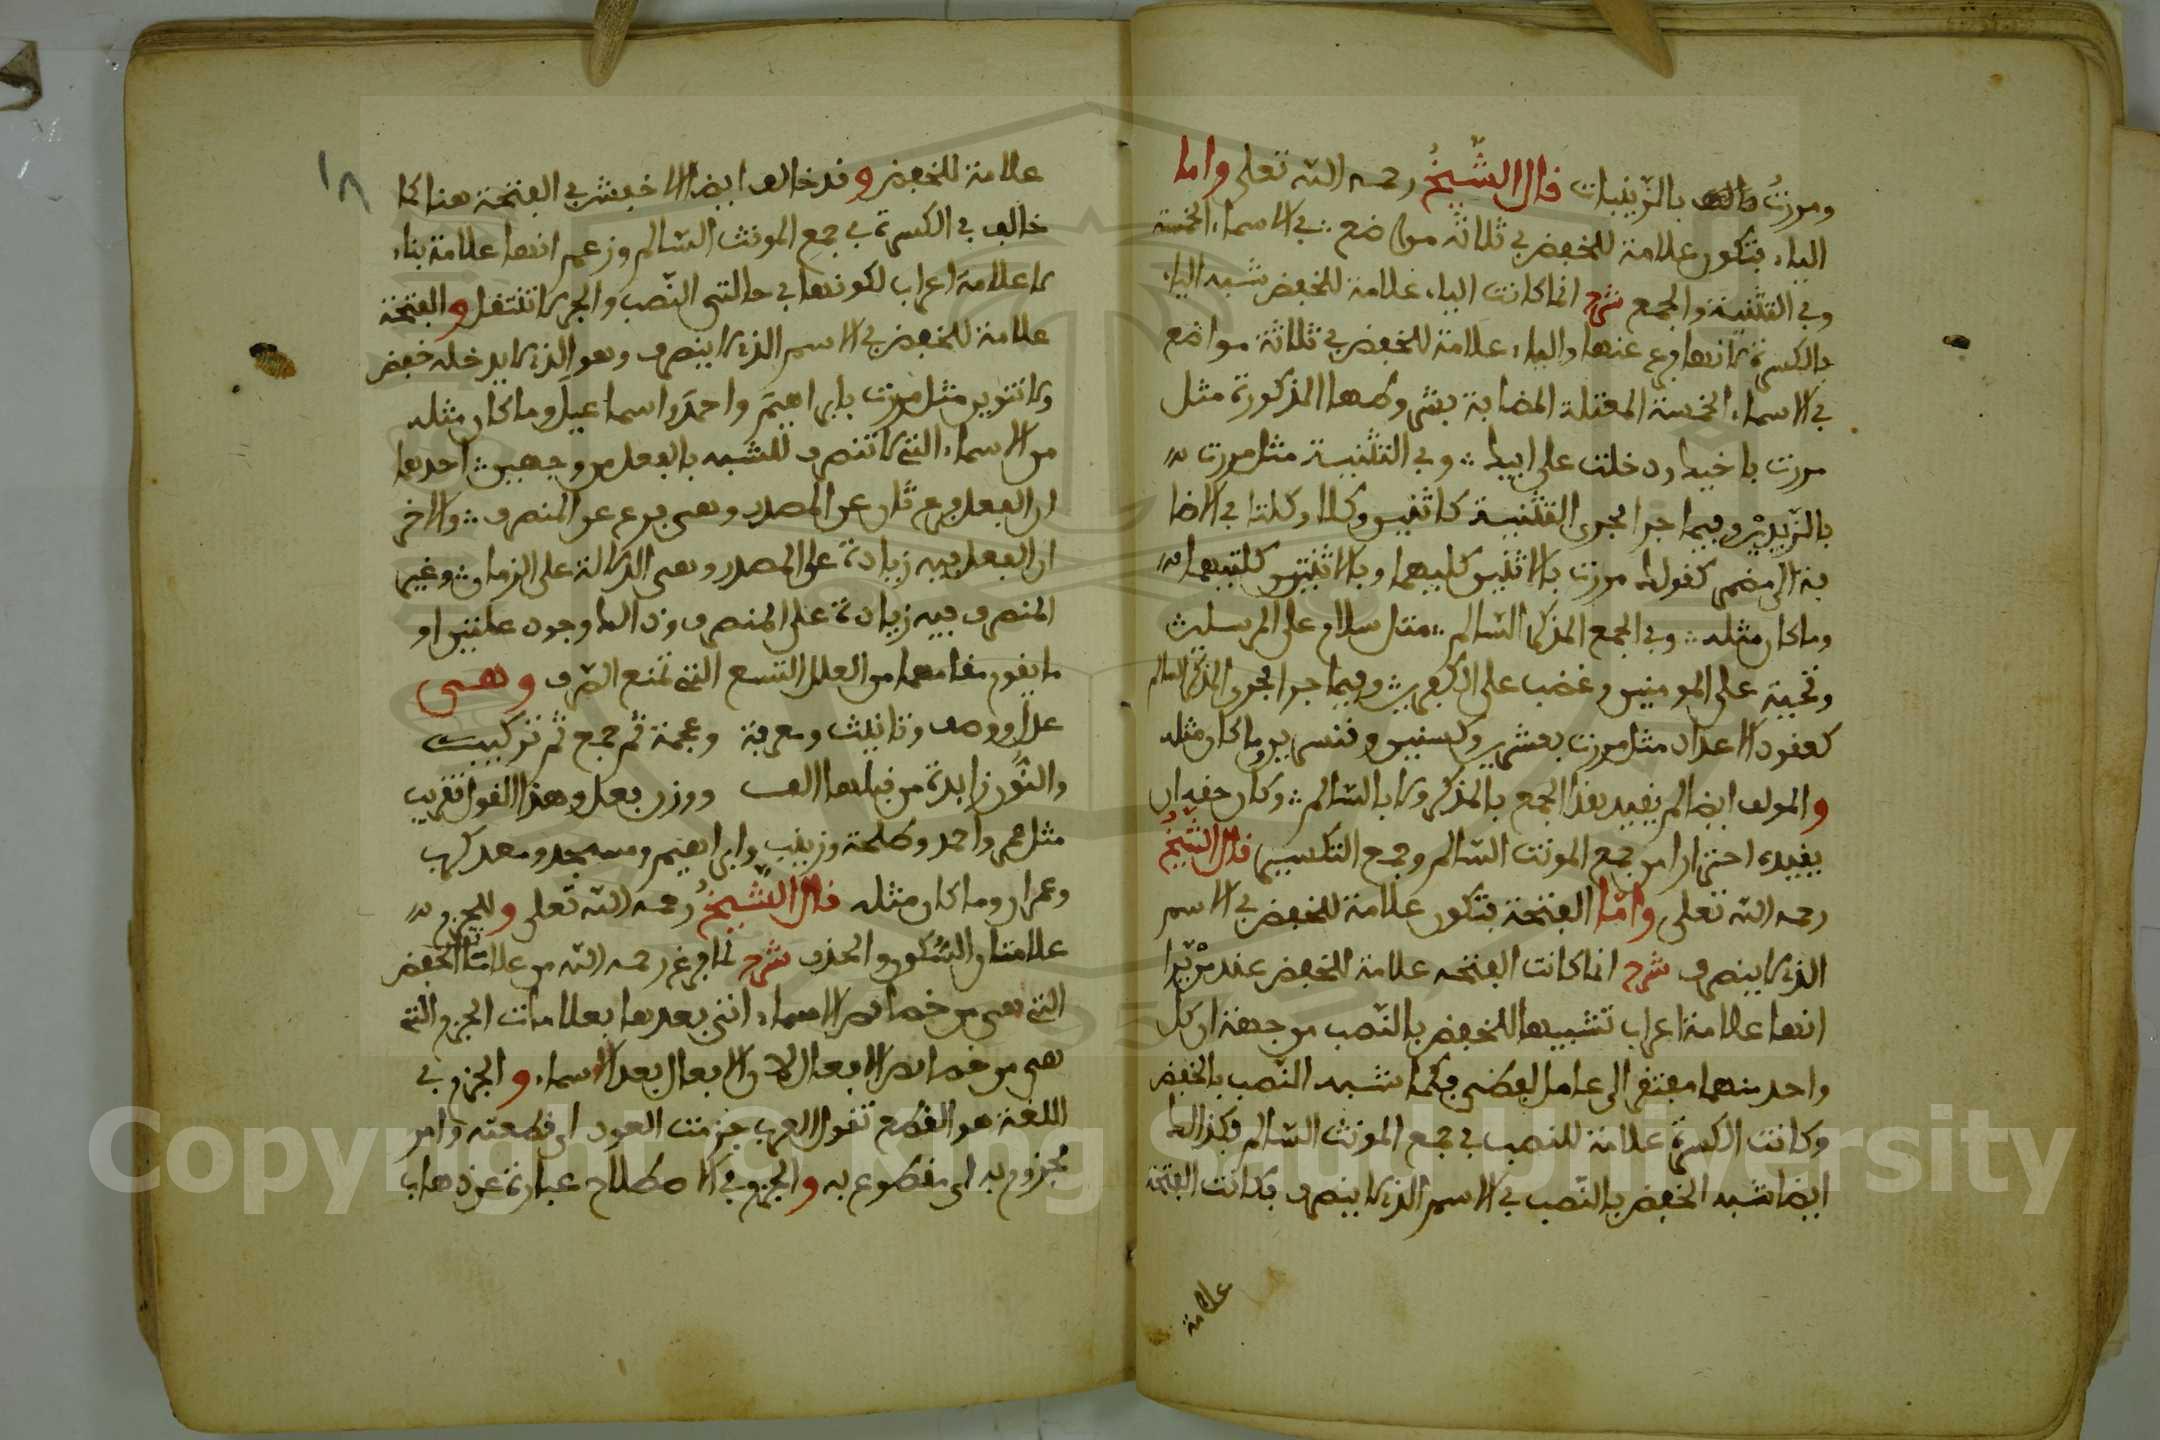 ومررتُ بالزينبات قال الشيخ رحمه الله تعلى واما
الياء فتكون علامة للخفض في ثلاثة مواضع في الاسماء الخمسة
وفي التثنية والجمع شرح انما كانت الياء علامة للخفض شبه الياء
بالكسرة لانها فرع عنها والياء علامة للخفض في ثلاثة مواضع
في الاسماء الخمسة المعتلة المضافة بشروطها المذكورة مثل
مررت باخيك ودخلت على ابيك وفي التثنية مثل مررت
بالزيدين وفيما جرا مجرى التثنية كاثنين وكلا وكلتا في الاضا
فة الى مضمر كقولك مررت بالاثنين كليهما وبالاثنتين كلتيهما
وماكان مثله وفي الجمع المذكر السالم مثل سلام على المرسلين
وتحية على المومنين وغضب على الكافرين وفيما جرا مجرى المذكر السالم
كعقود الاعداد مثل مررت بعشرين وكسنين وقنسرين وماكان مثله
والمولف ايضا لم يقيد هذا الجمع بالمذكر ولا بالسالم وكان حقه ان
يقيده احترازا من جمع المونث السالم وجمع التكسير قال الشيخ
رحمه الله تعلى واما الفتحة فتكون علامة للخفض في الاسم
الذي لا ينصرف شرح انما كانت الفتحه علامة للخفض عند من يرا
انها علامة اعراب تشبيها للخفض بالنصب من جهة ان كل
واحد منهما مفتقر الى عامل لفظي فكما شبه النصب بالخفض
وكانت الكسرة علامة للنصب في جمع المونث السالم فكذالك
ايضا شبه الخفض بالنصب في الاسم الذي لا ينصرف فكانت الفتحة
علامة
١٨
علامة للخفض وقد خالف ايضا الاخفش في الفتحة هنا كما
خالف في الكسرة في جمع المونث السالم وزعم انها علامة بناء
لا علامة اعراب لكونها في حالتي النصب والجر لا تنتقل والفتحة
علامة للخفض في الاسم الذي لا ينصرف وهو الذي لا يدخله خفض
ولا تنوين مثل مررت بابراهيمَ واحمدَ واسماعيلَ وما كان مثله
من الاسماء التي لا تنصرف للشبه بالفعل من وجهين احدهما
ان الفعل فرع ثان عن المصدر وهي فرع عن المنصرف والاخر
ان الفعل فيه زيادة على المصدر وهي الدلالة على الزمان وغير
المنصرف فيه زيادة على المنصرف وذالك وجود علتين او
ما يقوم مقامهما من العلل التسع التي تمنع الصرف وهي
عدل ووصف وتانيث ومعرفة وعجمة ثم جمع ثم تركيب
والنون زايدة من قبلها الف ووزن فعل وهذا القول تقريب
مثل عمر واحمد وطلحة وزينب وابراهيم ومسجد ومعد كرب
وعمران وماكان مثله قال الشيخ رحمه الله تعلى وللجزم
علامتان السكون والحذف شرح لما فرغ رحمه الله من علامات الخفض
التي هي من خصائص الاسماء اتى بعدها بعلامات الجزم التي
هي من خصائص الافعال لان الافعال بعد الاسماء والجزم في
اللغة هو القطع تقول العرب جزمت العود اي قطعته وامر
مجزوم به اي مقطوع به والجزم في الاصطلاح عبارة عن ذهاب
Copyright © King Saud University